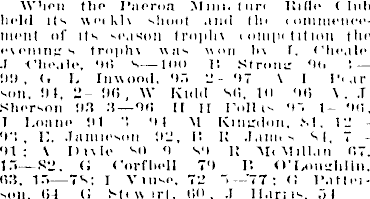 When the Paeroa Miniature Rifle Club
held its weekly shoot and the commence-
ment of its season trophy competition the
evening's trophy was won by J. Cheale
J Cheale, 96 8—100 B Strong 96 3—
99, G L Inwood, 95 2- 97 A I Pear
son, 94, 2- 96, W Kidd 86, 10 96 A. J
Sherson 93 3—96 H H Follis 95 1- 96,
J Loane 91 3 94 M Kingdon, 81, 12 -
93, E. Jamieson 92, B R James 84, 7 -
91; A Doyle 80 9 89 R McMillan 67,
15—82, G Corfbell 79 B O'Loughlin,
63, 15—78; I Vause, 72 5—77; G Patter-
son, 64 G Stewart, 60, J Harris, 54